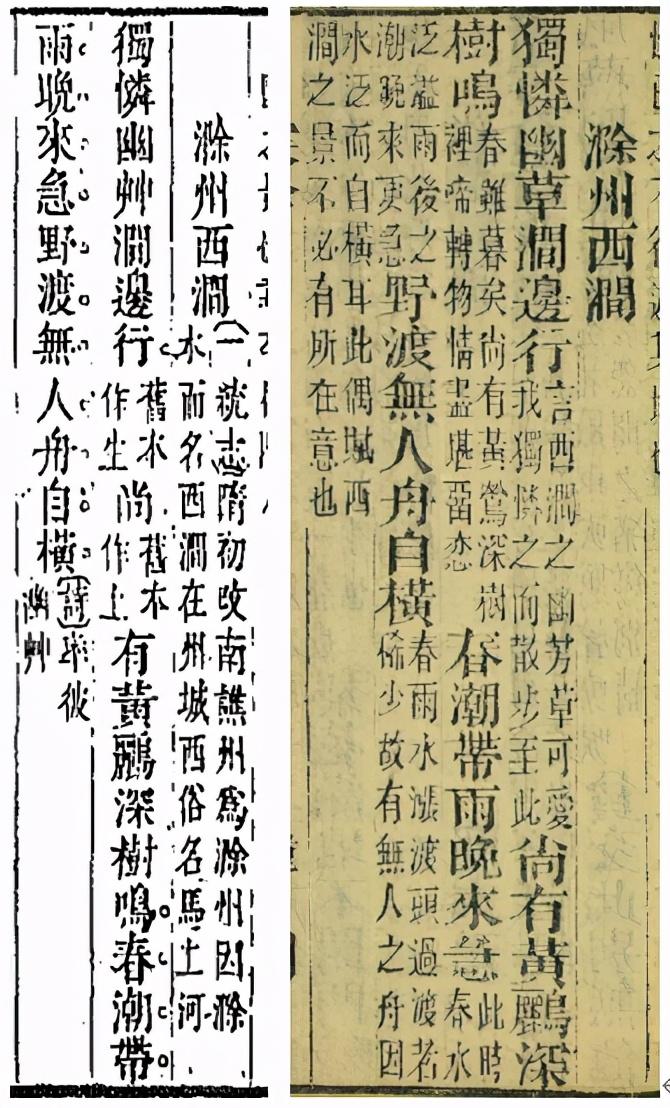 滁州西澗
獨憐幽草澗邊行言西澗之幽芳草可愛我獨憐之而散步至此尚有黃鸝深
樹鳴春雖暮矣尚有黃鶯深樹裡啼轉物情盡堪留恋春潮帶雨晚來急此時春水
泛溢雨後之潮晚來更急野渡無人舟自橫春雨水漲渡頭過渡者俙少故有無人之舟因
水泛而自橫耳此偶賦西澗之景不必有所在意也
滁州西澗(一統志)隋初改南譙州爲滁州因滁水而名西澗在州城西俗名馬土河
獨憐幽艸澗邊行舊本作生尚舊本作上有黃鸝深樹鳴春潮帶
雨晚來急野渡無人舟自橫(詩)率彼幽艸